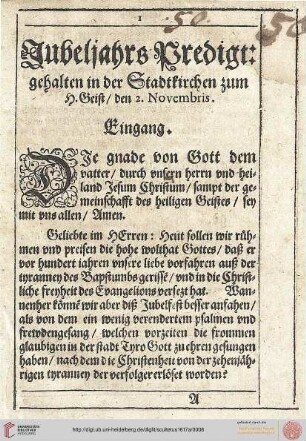 1
50
50
Jubeljahrs Predigt:
gehalten in der Stadtkirchen zum
H. Geist / den 2. Novembris.
Eingang.
DIe gnade von Gott dem
vatter / durch unsern herrn und hei-
land Jesum Christum / sampt der ge-
meinschafft des heiligen Geistes / sey
mit uns allen / Amen.
Geliebte im HErren: Heut sollen wir rüh-
men und preisen die hohe wolthat Gottes / daß er
vor hundert jahren unsere liebe vorfahren auß der
tyranney des Bapstumbs gerissē / und in die Christ-
liche freyheit des Evangelions versezt hat. Wan-
nenher könnē wir aber diß Jubelfest besser anfahen /
als von dem ein wenig verendertem psalmen und
frewdengesang / welchen vorzeiten die frommen
glaubigen in der stadt Tyro Gott zu ehren gesungen
haben / nach dem die Christenheit von der zehenjäh-
rigen tyranney der verfolger erlöset worden?
A
http://digi.ub.uni-heidelberg.de/diglit/scultetus1617a/0006